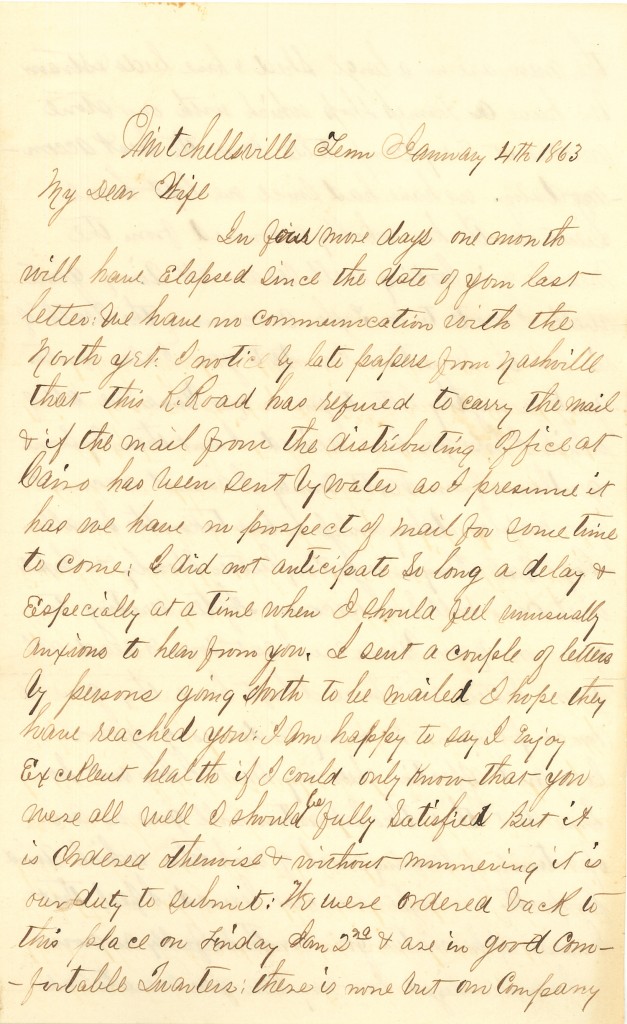 Mitchellsville Tenn January 4th 1863
My Dear Wife
In four more days one month
will have Elapsed since the date of your last
letter: We have no communication with the
North yet: I notice by late papers from Nashville
that this R. Road has refused to carry the mail
& if the mail from the distributing Office at
Cairo has been sent by water as I presume it
has we have no prospect of mail for some time
to come: I did not anticipate so long a delay &
Especially at a time when I should feel unusually
anxious to hear from you. I sent a couple of letters
by persons going North to be mailed I hope they
have reached you: I am happy to say I Enjoy
Excellent health if I could only Know that you
were all well I should be fully Satisfied But it
is Ordered otherwise & without murmuring it is
our duty to submit: We were ordered back to
this place on Friday Jan 2nd & are in good Com-
-fortable Quarters: there is none but our Company